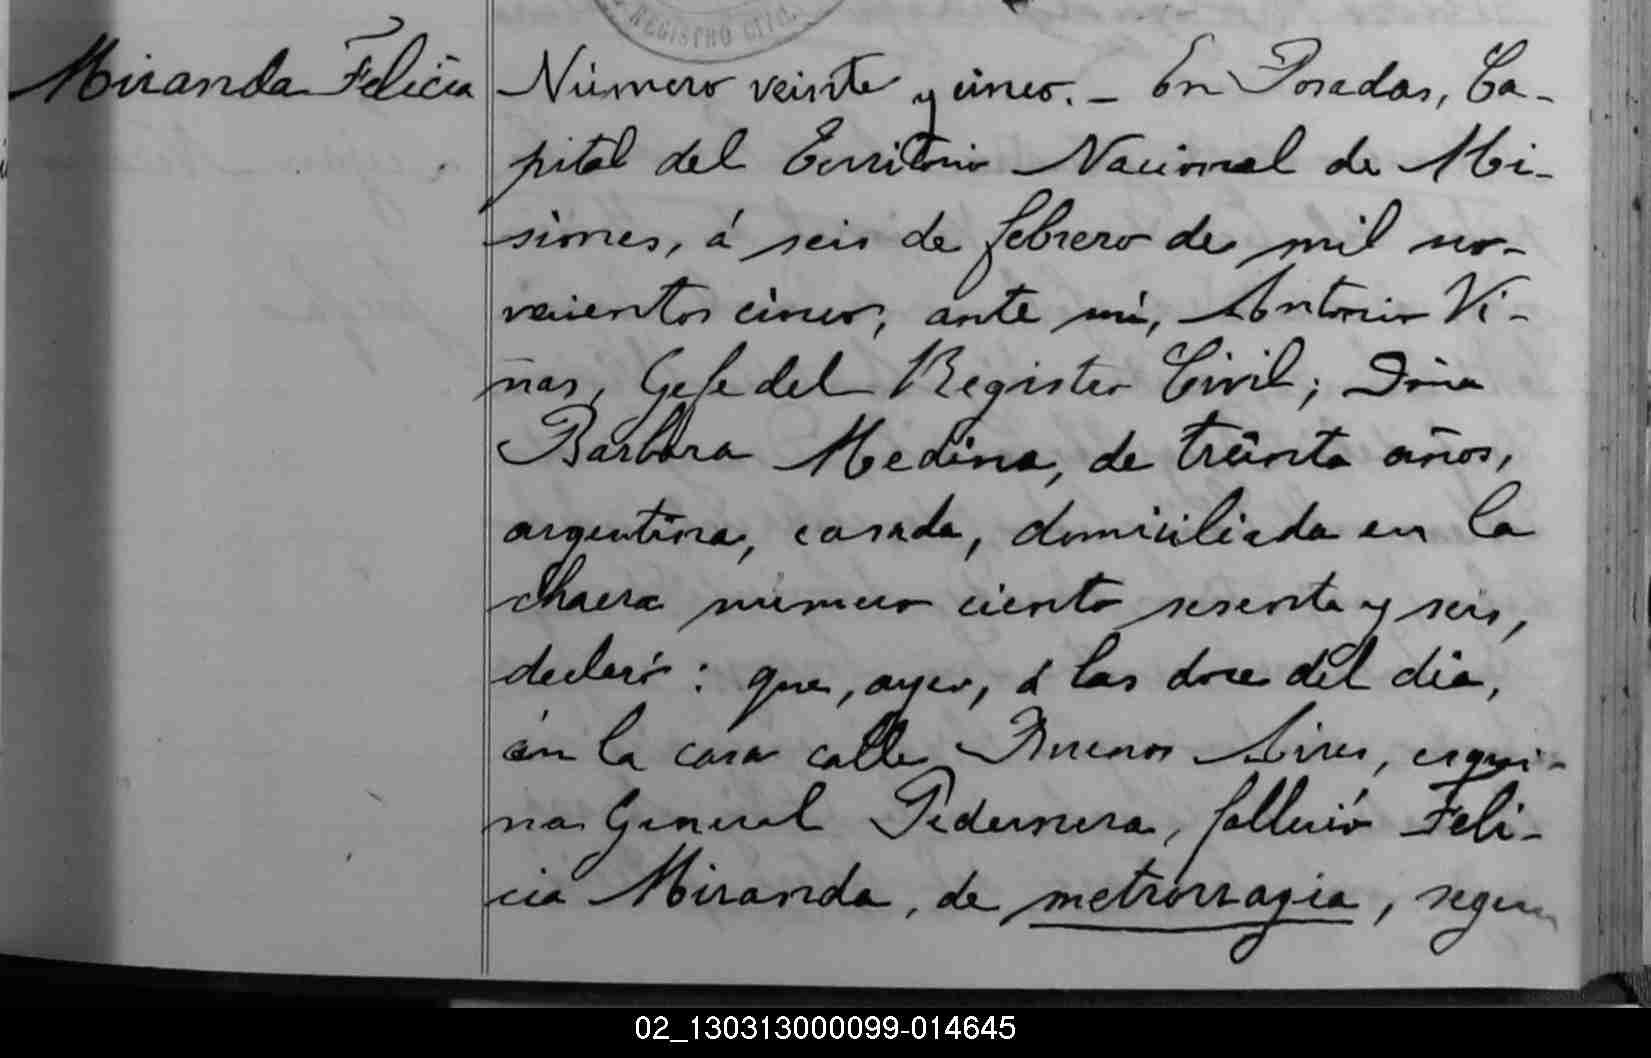 REGISTRO CIVIL
Miranda Felicia
Número veinte y cinco. – En Posadas, Ca-
pital del Territorio Nacional de Mi-
siones, á seis de febrero de mil no-
vecientos cinco, ante mi, Antonio Vi-
ñas, Gefe del Registro Civil; Doña
Barbara Medina, de treinta años,
argentina, casada, domiciliada en la
chacra número ciento sesenta y seis,
declaró: que, ayer, á las doce del dia,
en la casa calle Buenos Aires, esqui-
na General Pedernera, falleció Feli-
cia Miranda, de metrorragia, segun
02_130313000099-014645